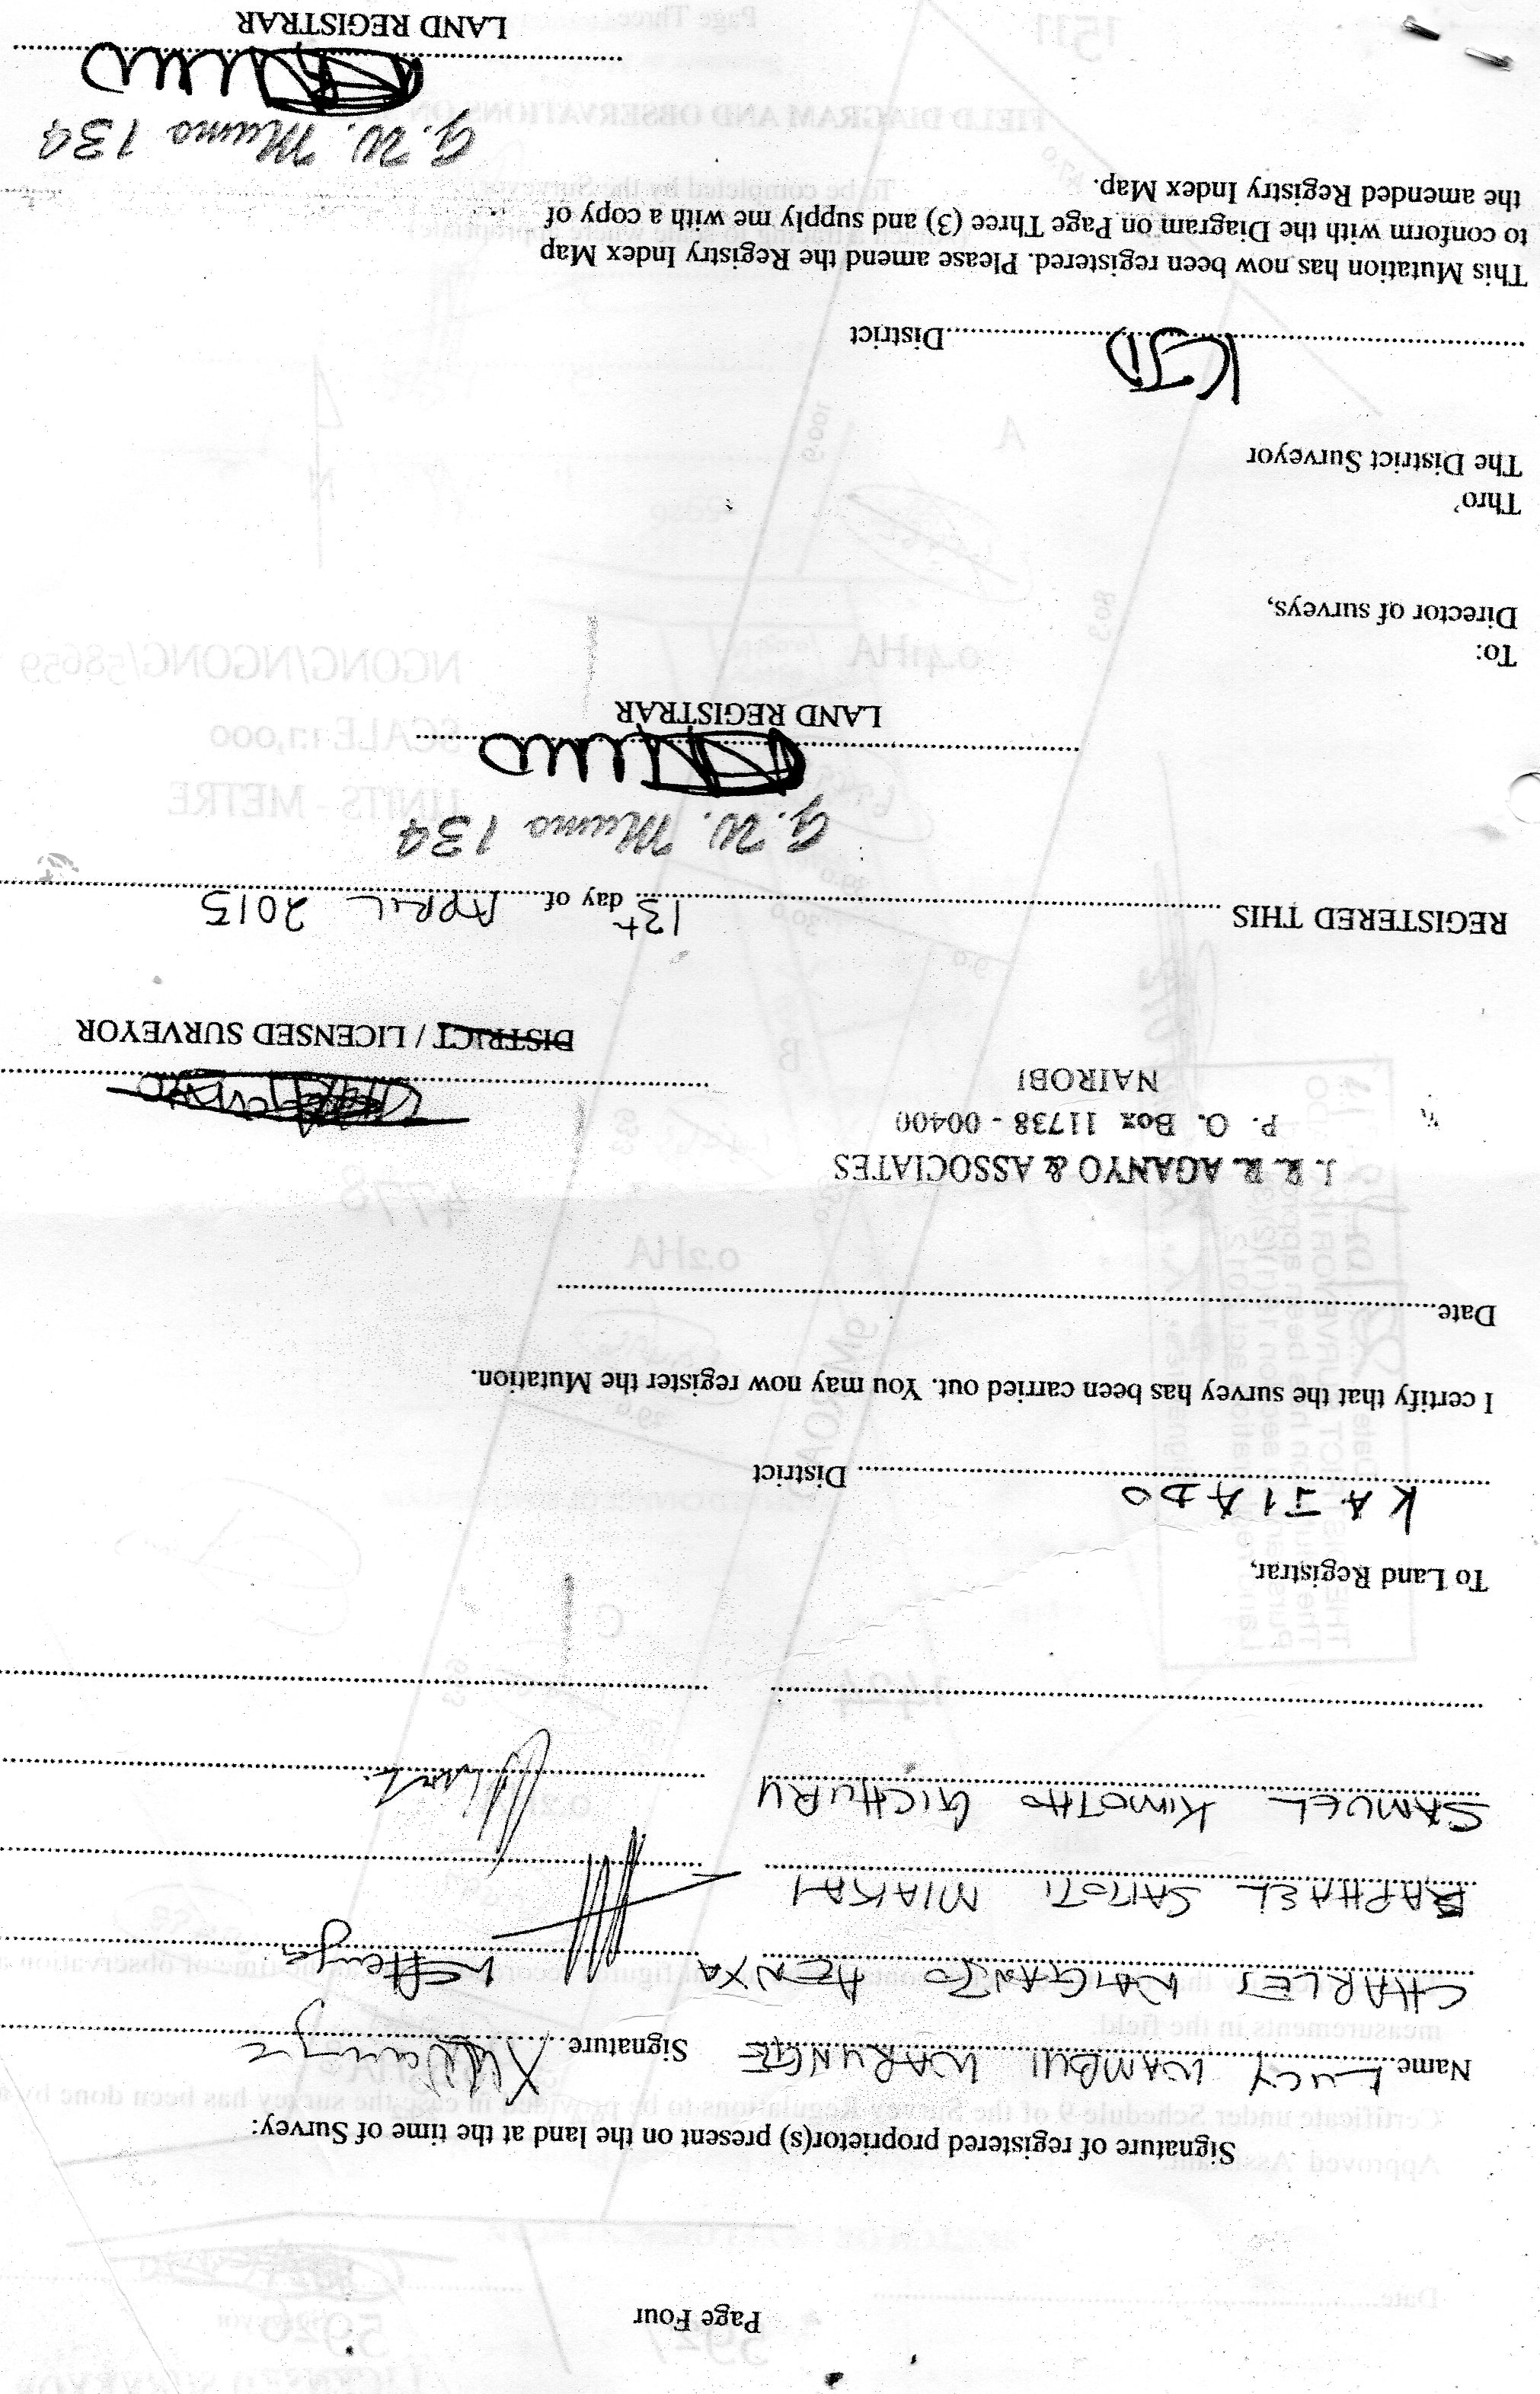 Page Four
Signature of registered proprietor(s) present on the land at the time of Survey:
Name LUCY WAMBUI WARUNGE Signature
CHARLES WAIGANJO HENYA
RAPHAEL SAITOTI MIAKAH
SAMUEL KIMOTHO GICHURU
To Land Registrar,
KAJIADO District
I certify that the survey has been carried out. You may now register the Mutation.
Date
J. R. R. AGANYO & ASSOCIATES
P. O. Box 11738 - 00400
NAIROBI
DISTRICT / LICENSED SURVEYOR
REGISTERED THIS 13t day of APRIL 2015
G. W. Mumo 134
LAND REGISTRAR
To:
Director of surveys,
Thro'
The District Surveyor
KJD District
This Mutation has now been registered. Please amend the Registry Index Map
to conform with the Diagram on Page Three (3) and supply me with a copy of
the amended Registry Index Map.
G. W. Mumo 134
LAND REGISTRAR